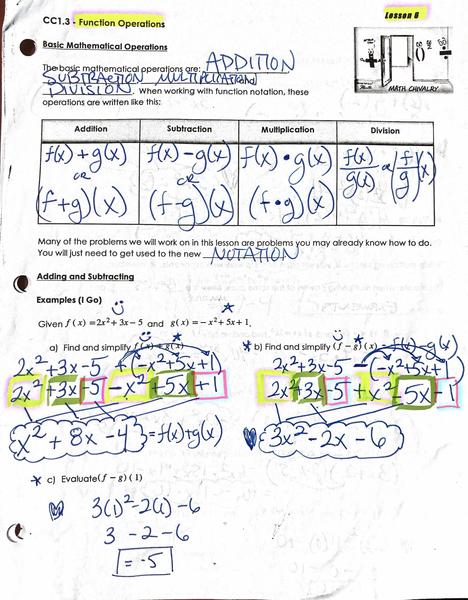 CC1.3 - Function Operations
Lesson 6
Basic Mathematical Operations
MATH CHIVALRY
The basic mathematical operations are: ADDITION
SUBTRACTION MULTIPLICATION
DIVISION. When working with function notation, these
operations are written like this:
Addition Subtraction Multiplication Division
f(x) + g(x) f(x) - g(x) f(x) • g(x) f(x)/g(x) or (f/g)(x)
OR OR
(f+g)(x) (f-g)(x) (f•g)(x)
Many of the problems we will work on in this lesson are problems you may already know how to do.
You will just need to get used to the new NOTATION
Adding and Subtracting
Examples (I Go)
Given f(x) = 2x² + 3x – 5 and g(x) = – x² + 5x + 1,
a) Find and simplify f(x) + g(x)
2x² + 3x - 5 + (-x² + 5x + 1)
2x² + 3x - 5 - x² + 5x + 1
x² + 8x - 4 = f(x) + g(x)
b) Find and simplify (f – g)(x) = f(x) - g(x)
2x² + 3x - 5 - (-x² + 5x + 1)
2x² + 3x - 5 + x² - 5x - 1
3x² - 2x - 6
c) Evaluate (f – g)(1)
3(1)² - 2(1) - 6
3 - 2 - 6
= -5